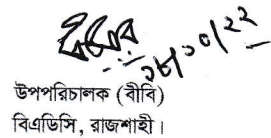 ১৮/১০/২২
উপপরিচালক (বীবি)
বিএডিসি, রাজশাহী।